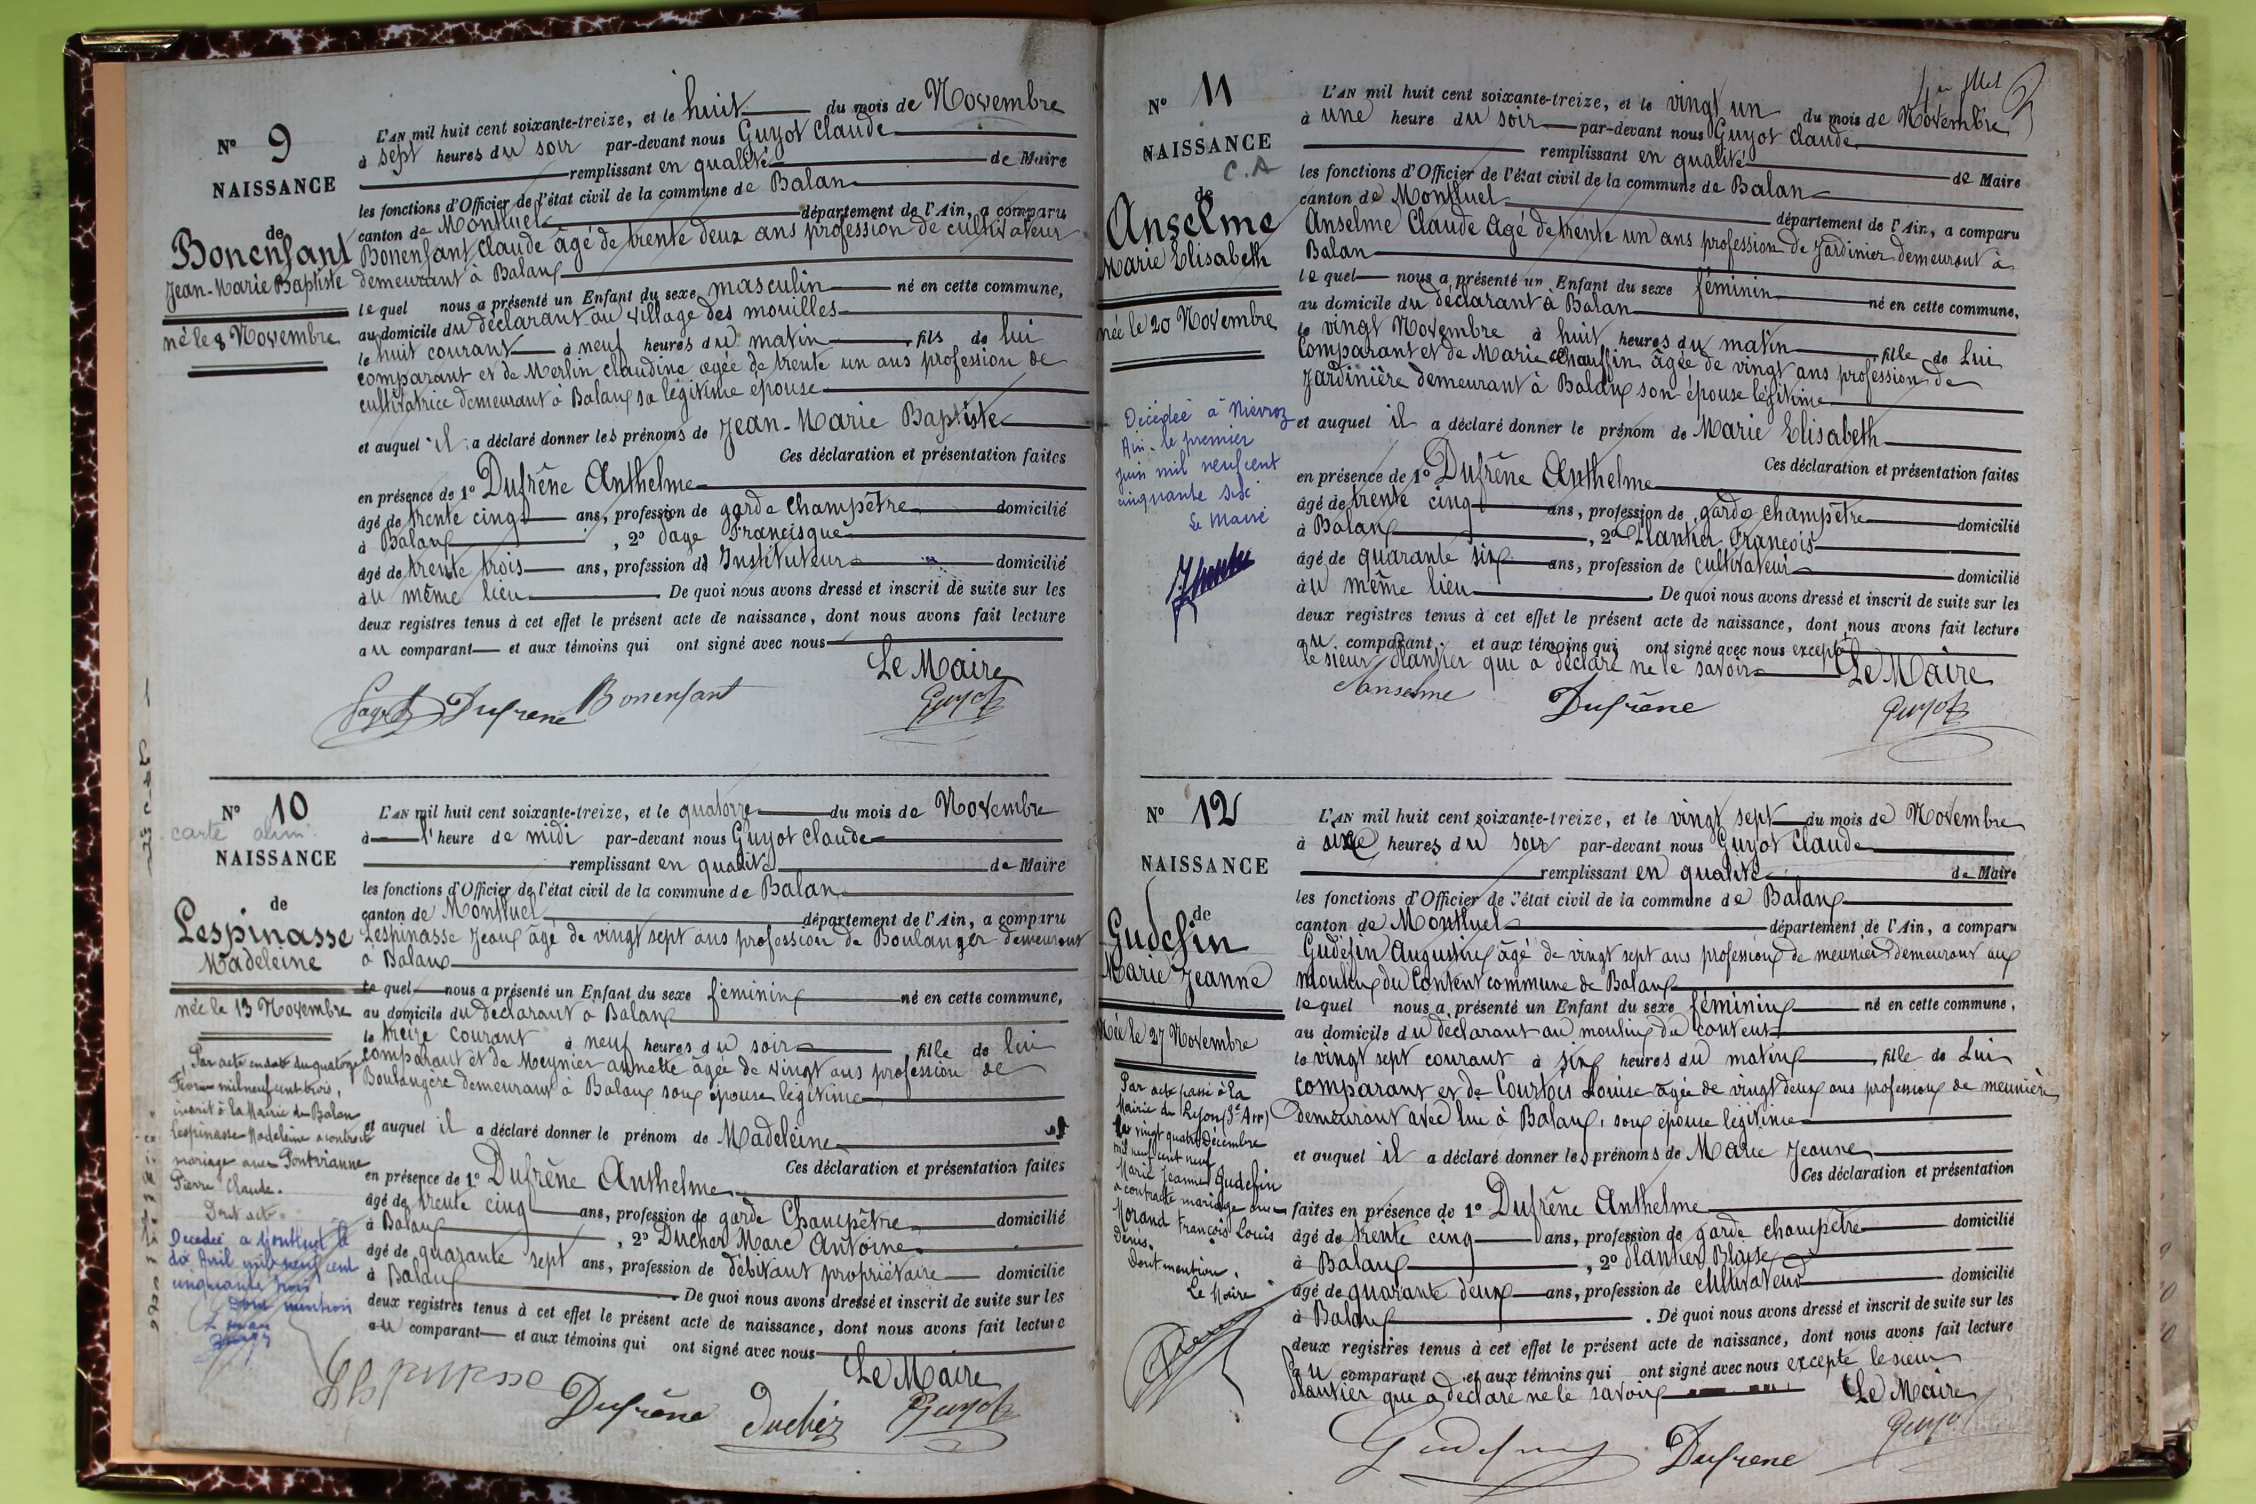 N° 9
NAISSANCE
de
Bonenfant
Jean-Marie Baptiste
né le 8 Novembre
L'AN mil huit cent soixante-treize, et le huit du mois de Novembre
à sept heures du soir par-devant nous Guyot Claude
remplissant en qualité de Maire
les fonctions d'Officier de l'état civil de la commune de Balan
canton de Montluel département de l'Ain, a comparu
Bonenfant Claude âgé de trente deux ans profession de cultivateur
demeurant à Balan
lequel nous a présenté un Enfant du sexe masculin né en cette commune,
au domicile du déclarant au village des mouilles
le huit courant à neuf heures du matin fils de lui
comparant et de Merlin Claudine agée de trente un ans profession de
cultivatrice demeurant à Balan sa légitime épouse
et auquel il a déclaré donner les prénoms de Jean-Marie Baptiste
Ces déclaration et présentation faites
en présence de 1° Dufrêne Anthelme
âgé de trente cinq ans, profession de garde champêtre domicilié
à Balan , 2° Page Francisque
âgé de trente trois ans, profession de Instituteur domicilié
au même lieu De quoi nous avons dressé et inscrit de suite sur les
deux registres tenus à cet effet le présent acte de naissance, dont nous avons fait lecture
au comparant et aux témoins qui ont signé avec nous
Le Maire
Page Dufrene Bonenfant Guyot
N° 10
carte alim.
NAISSANCE
de
Lespinasse
Madeleine
née le 13 Novembre
Par acte en date du quatorze
Février mil neuf cent trois,
inscrit à la Mairie de Balan
Lespinasse Madeleine a contracté
mariage avec Pontvianne
Pierre Claude.
Dont acte.
Décédée à Montluel le
dix Avril mil neuf cent
cinquante trois
Dont mention
L'AN mil huit cent soixante-treize, et le quatorze du mois de Novembre
à l'heure de midi par-devant nous Guyot Claude
remplissant en qualité de Maire
les fonctions d'Officier de l'état civil de la commune de Balan
canton de Montluel département de l'Ain, a comparu
Lespinasse Jean âgé de vingt sept ans profession de Boulanger demeurant
à Balan
lequel nous a présenté un Enfant du sexe féminin né en cette commune,
au domicile du déclarant à Balan
le treize courant à neuf heures du soir fille de lui
comparant et de Meynier annette âgée de vingt ans profession de
Boulangère demeurant à Balan son épouse légitime
et auquel il a déclaré donner le prénom de Madeleine
Ces déclaration et présentation faites
en présence de 1° Dufrêne Anthelme
âgé de trente cinq ans, profession de garde Champêtre domicilié
à Balan , 2° Ducher Marc Antoine
âgé de quarante sept ans, profession de débitant propriétaire domicilié
à Balan De quoi nous avons dressé et inscrit de suite sur les
deux registres tenus à cet effet le présent acte de naissance, dont nous avons fait lecture
au comparant et aux témoins qui ont signé avec nous
Le Maire
Lespinasse Dufrêne Ducher Guyot
N° 11
NAISSANCE
C.A
de
Anselme
Marie Elisabeth
née le 20 Novembre
Décédée à Niévroz
Ain. le premier
juin mil neuf cent
cinquante six
Le Maire
L'AN mil huit cent soixante-treize, et le vingt un du mois de Novembre
à une heure du soir par-devant nous Guyot Claude
remplissant en qualité de Maire
les fonctions d'Officier de l'état civil de la commune de Balan
canton de Montluel département de l'Ain, a comparu
Anselme Claude Agé de trente un ans profession de Jardinier demeurant à
Balan
lequel nous a présenté un Enfant du sexe féminin né en cette commune,
au domicile du déclarant à Balan
le vingt Novembre à huit heures du matin fille de Lui
Comparant et de Marie Chauffin âgée de vingt ans profession de
Jardinière demeurant à Balan son épouse légitime
et auquel il a déclaré donner le prénom de Marie Elisabeth
Ces déclaration et présentation faites
en présence de 1° Dufrêne Anthelme
âgé de trente cinq ans, profession de garde champêtre domicilié
à Balan , 2° Plantier François
âgé de quarante six ans, profession de cultivateur domicilié
au même lieu De quoi nous avons dressé et inscrit de suite sur les
deux registres tenus à cet effet le présent acte de naissance, dont nous avons fait lecture
au comparant et aux témoins qui ont signé avec nous excepté
le sieur Plantier qui a déclaré ne le savoir Le Maire
Anselme Dufrêne Guyot
N° 12
NAISSANCE
de
Gudefin
Marie Jeanne
Née le 27 Novembre
Par acte passé à la
Mairie de Lyon (3e Arr)
le vingt quatre Décembre
mil neuf cent neuf
Marie Jeanne Gudefin
a contracté mariage avec
Morand François Louis
Denis.
Dont mention.
Le Maire
L'AN mil huit cent soixante-treize, et le vingt sept du mois de Novembre
à six heures du soir par-devant nous Guyot Claude
remplissant en qualité de Maire
les fonctions d'Officier de l'état civil de la commune de Balan
canton de Montluel département de l'Ain, a comparu
Gudefin Augustin âgé de vingt sept ans profession de meunier demeurant au
moulin du Content commune de Balan
lequel nous a présenté un Enfant du sexe féminin né en cette commune,
au domicile du déclarant au moulin du content
le vingt sept courant à six heures du matin fille de Lui
comparant et de Courtois Louise agée de vingt deux ans profession de meunière
demeurant avec lui à Balan, son épouse légitime
et auquel il a déclaré donner les prénoms de Marie Jeanne
Ces déclaration et présentation
faites en présence de 1° Dufrêne Anthelme
âgé de trente cinq ans, profession de garde champetre domicilié
à Balan , 2° Plantier Blaise
âgé de quarante deux ans, profession de cultivateur domicilié
à Balan . De quoi nous avons dressé et inscrit de suite sur les
deux registres tenus à cet effet le présent acte de naissance, dont nous avons fait lecture
au comparant et aux témoins qui ont signé avec nous excepté le sieur
Plantier qui a déclaré ne le savoir Le Maire
Gudefin Dufrene Guyot